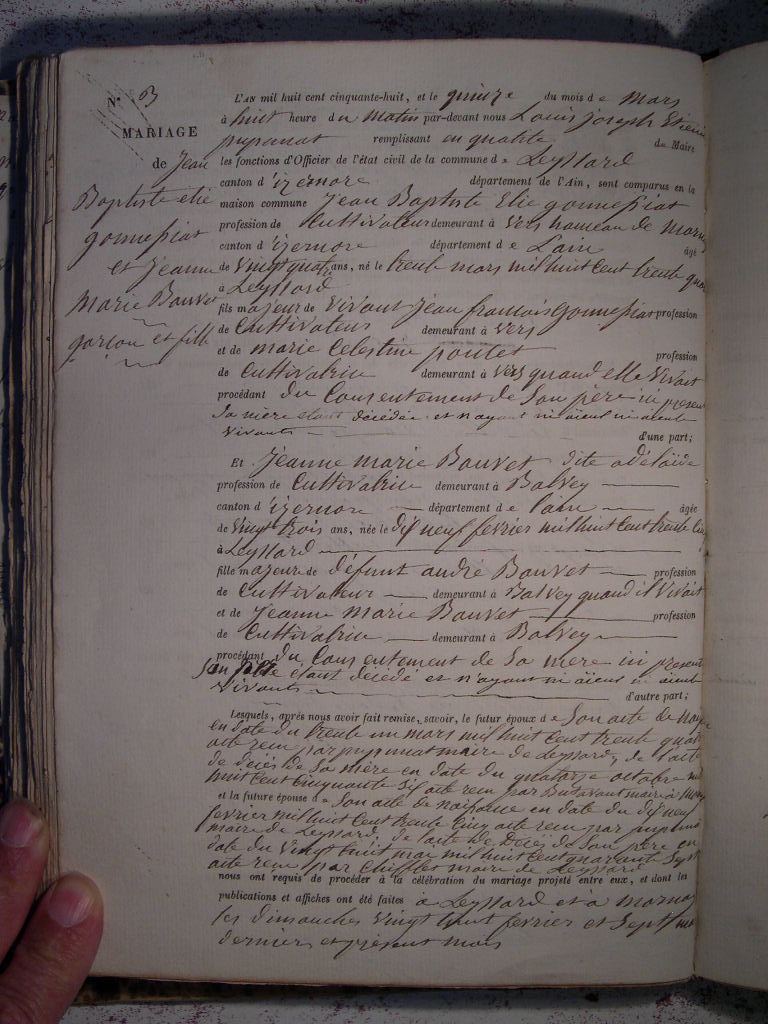 N° 3
MARIAGE
de Jean
Baptiste elie
gonnessiat
et Jeanne
marie Bouvet
garcon et fille
L'AN mil huit cent cinquante-huit, et le quinze du mois de Mars
à huit heure du matin par-devant nous Louis joseph Etienne
remplissant en qualité de Maire
les fonctions d'Officier de l'état civil de la commune de Leyssard
canton d'izernore département de l'Ain, sont comparus en la
maison commune Jean Baptiste Elie gonnessiat
profession de Cultivateur demeurant à Vers hameau de Mornay
canton d'izernore département de Lain âgé
de Vingt quatre ans, né le trente mars mil huit cent trente qua
à Leyssard
fils majeur de Vivant Jean francois Gonnessiat profession
de Cultivateur demeurant à Vers
et de marie Celestine poulet profession
de Cultivatrice demeurant à Vers quand elle Vivait
procédant du Consentement de Son père ici présent
Sa mère étant décédée et n'ayant ni aïeul ni aieule
vivants d'une part;
Et Jeanne marie Bouvet dite adélaïde
profession de Cultivatrice demeurant à Balvey
canton d'izernore département de lain âgée
de Vingt trois ans, née le dix neuf fevrier mil huit Cent trente Cinq
à Leyssard
fille majeure de défunt andré Bouvet profession
de Cultivateur demeurant à Balvey quand il Vivait
et de Jeanne Marie Bouvet profession
de Cultivatrice demeurant à Balvey
procédant du Consentement de Sa mere ici present
Son père étant décédé et n'ayant ni aïeul ni aieule
Vivants d'autre part;
Lesquels, après nous avoir fait remise, savoir, le futur époux de Son acte de nais
en date du trente un mars mil huit Cent trente quat
acte recu par maire de Leyssard, de l'acte
de décès de Sa mère en date du quatorze octobre mil
huit Cent Cinquante Six acte recu par maire à
et la future épouse de Son acte de naissance en date du dix neuf
fevrier mil huit Cent trente Cinq acte recu par
maire de Leyssard, de l'acte de Décès de Son père en
date du Vingt huit mai mil huit Cent quarante Sept
acte recu par Chifflet maire de Leyssard
nous ont requis de procéder à la célébration du mariage projeté entre eux, et dont les
publications et affiches ont été faites à Leyssard et à Mornay
les dimanches Vingt huit fevrier et Sept mars
derniers et présent mois